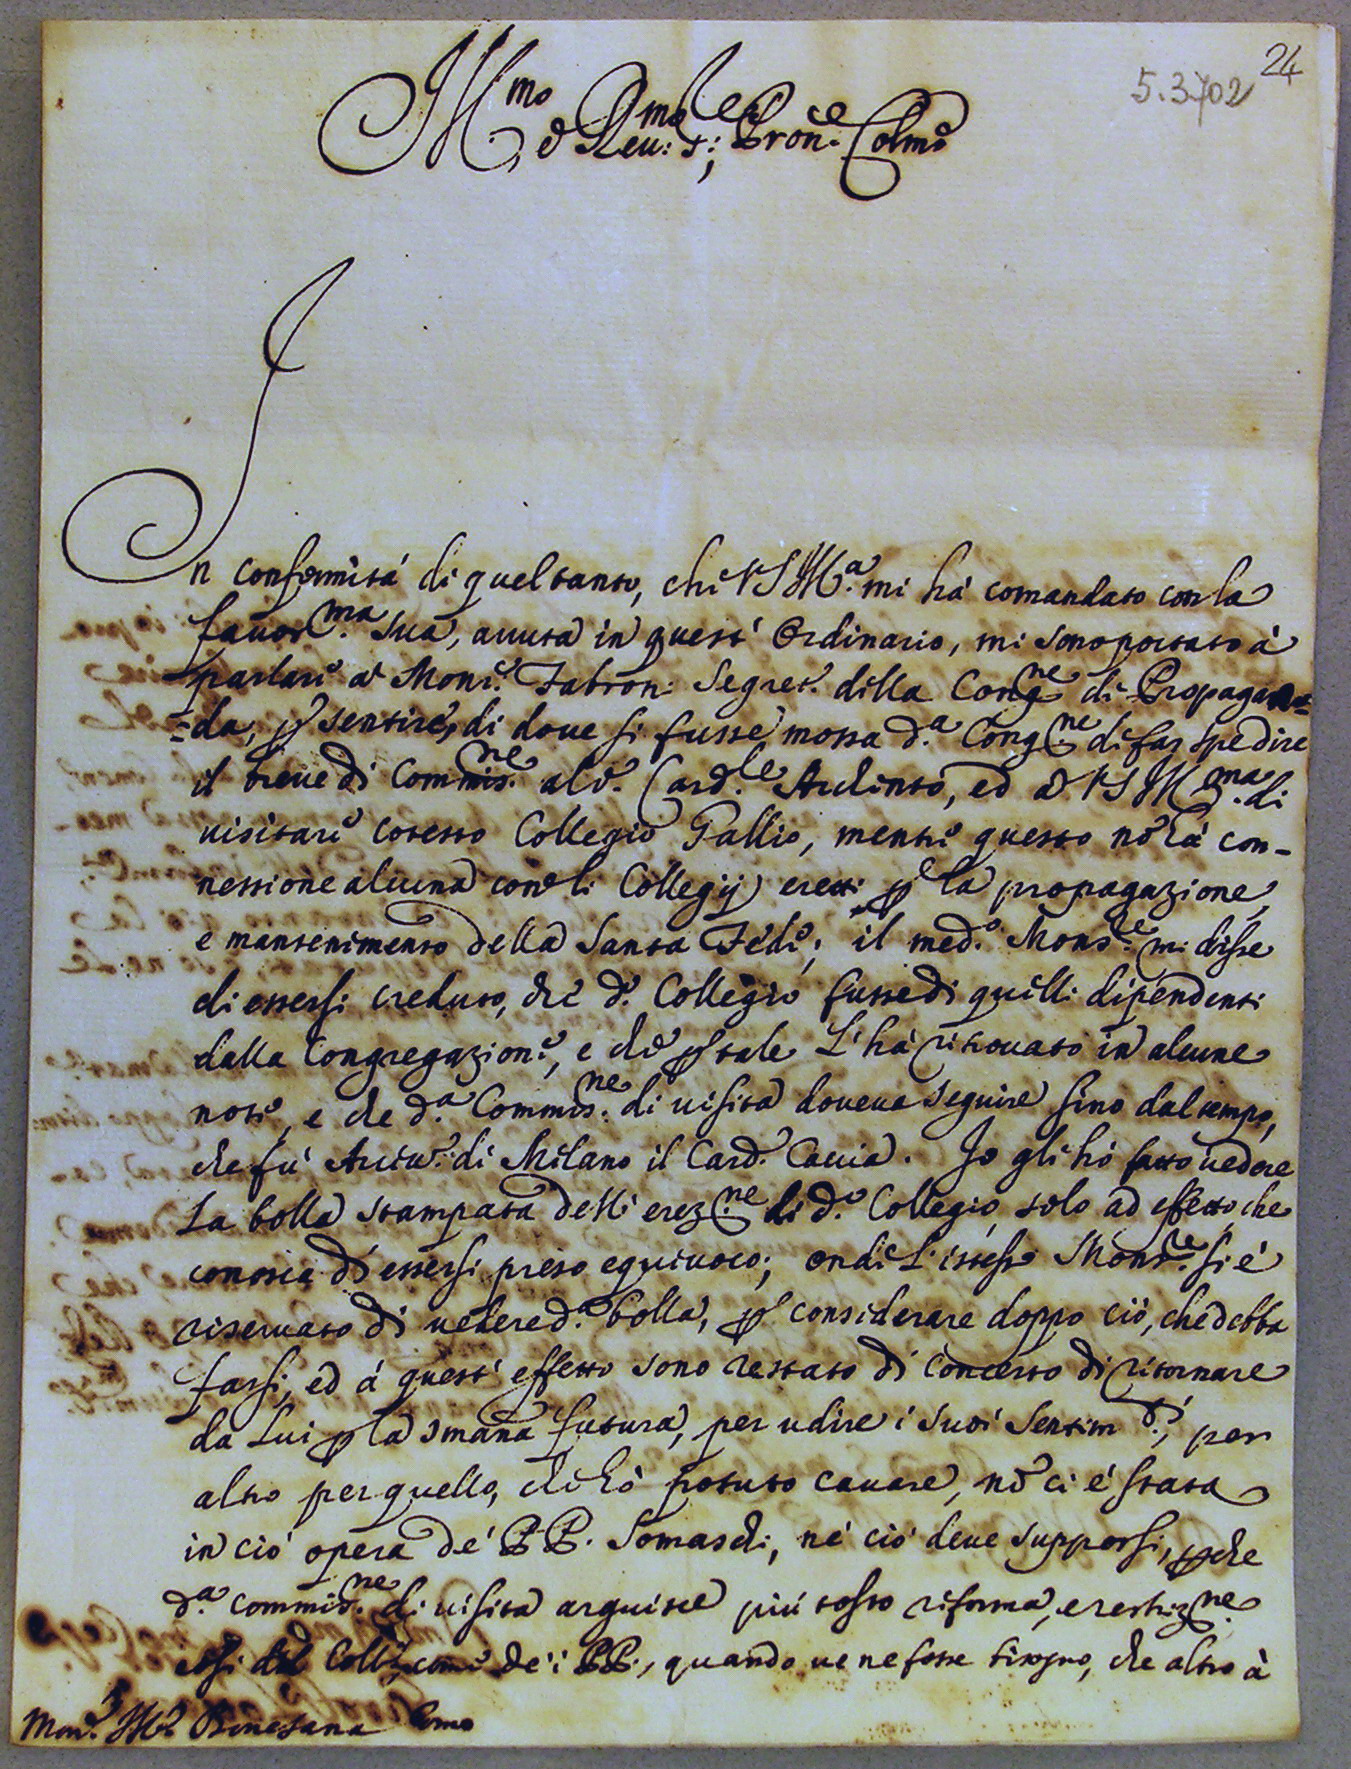 24
5.3702
Ill.mo e Reu: mo S.r; Pron.e Colmo
In conformità di quel tanto, che VS Ill.a mi hà comandato con la
fauor.ma sua, auuta in quest' Ordinario, mi sono portato à
parlare à Mons.r Fabroni Segret.o della Cong.ne di Propagan=
=da, p sentire, di doue si fusse mossa d.a Cong.ne di far spedire
il breue di Commis.ne al S.r Card.le Archinto, ed à VS Ill.ma di
uisitare cotesto Collegio Gallio, mentre questo nõ hà con-
nessione alcuna con li Collegij eretti p la propagazione,
e mantenimento della Santa Fede; il med.o Mons.re mi disse
di essersi creduto, che d.o Collegio fusse di quelli dipendenti
dalla Congregazione, e che p tale l'hà ritrouato in alcune
note, e che d.a Commis.ne di uisita doueua seguire sino dal tempo,
che fù Arciu.o di Milano il Card. Caccia. Io gli hò fatto uedere
la bolla stampata dell' erez.ne di d.o Collegio, solo ad effetto che
conosca di essersi preso equiuoco; onde l'istesso Mons.re si è
riseruato di uedere d.a bolla, p considerare doppo ciò, che debba
farsi, ed à quest' effetto sono restato di concerto di ritornare
da Lui p la smana futura, per udire i suoi sentim.ti, per
altro per quello, che hò potuto cauare, nõ ci è stata
in ciò opera de' PP. Somaschi, ne ciò deue supporsi, pche
d.a commis.ne di uisita arguisce più tosto riforma, e restriz.ne
sì del Coll.o come de' i PP., quando ue ne fosse bisogno, che altro à
Mons.r Ill.o Bonesana Como